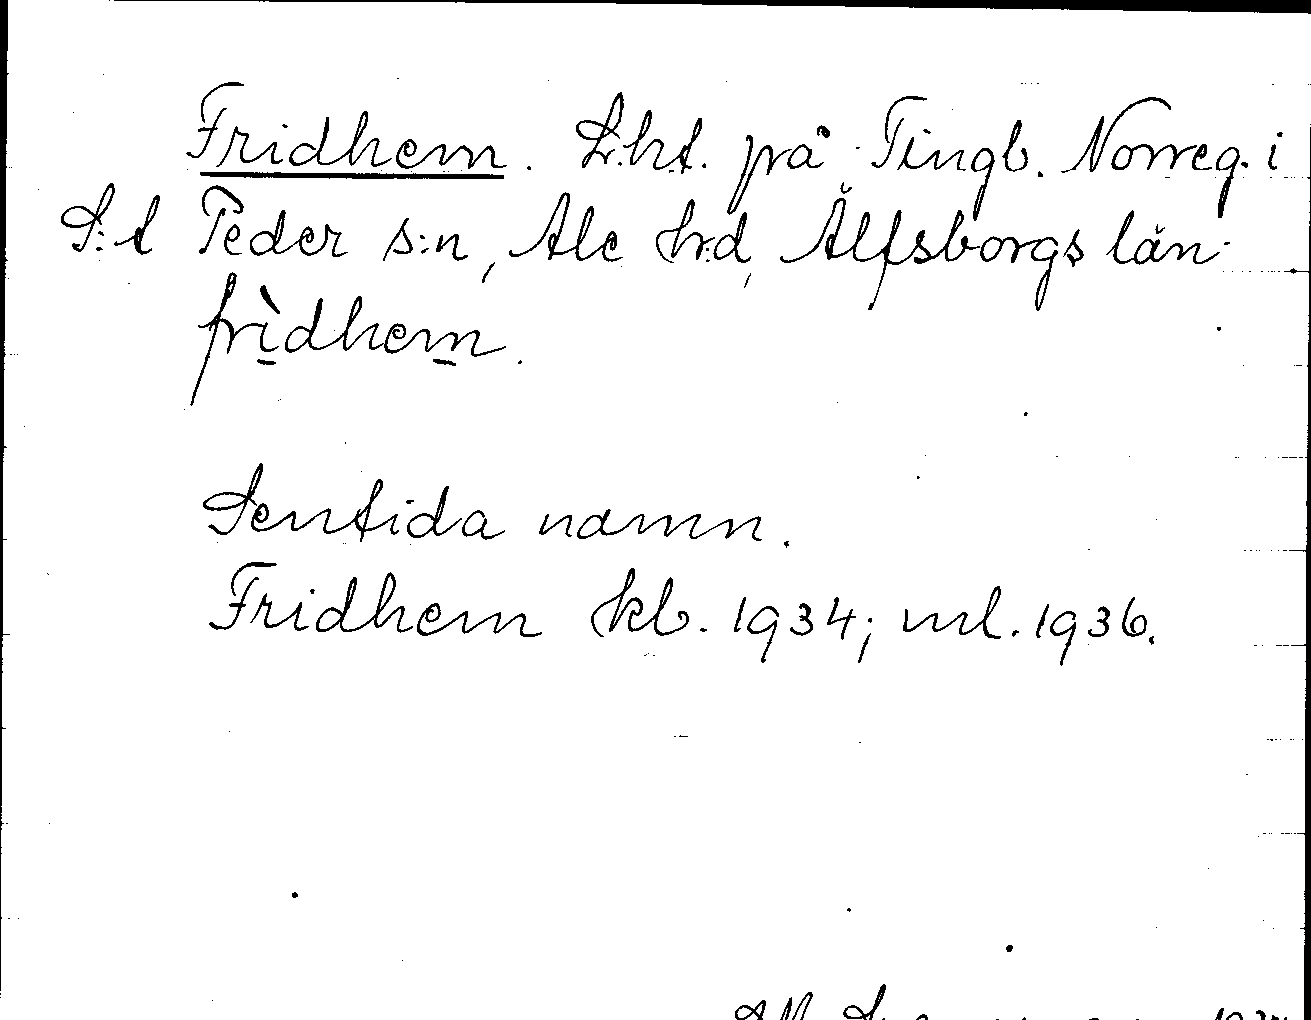 Fridhem. L:ht. på Tingb. Norreg. i
S:t Peder s:n, Ale h:d, Älfsborgs län.
frì̲dhem̲.
Sentida namn.
Fridhem kb. 1934; ml. 1936.